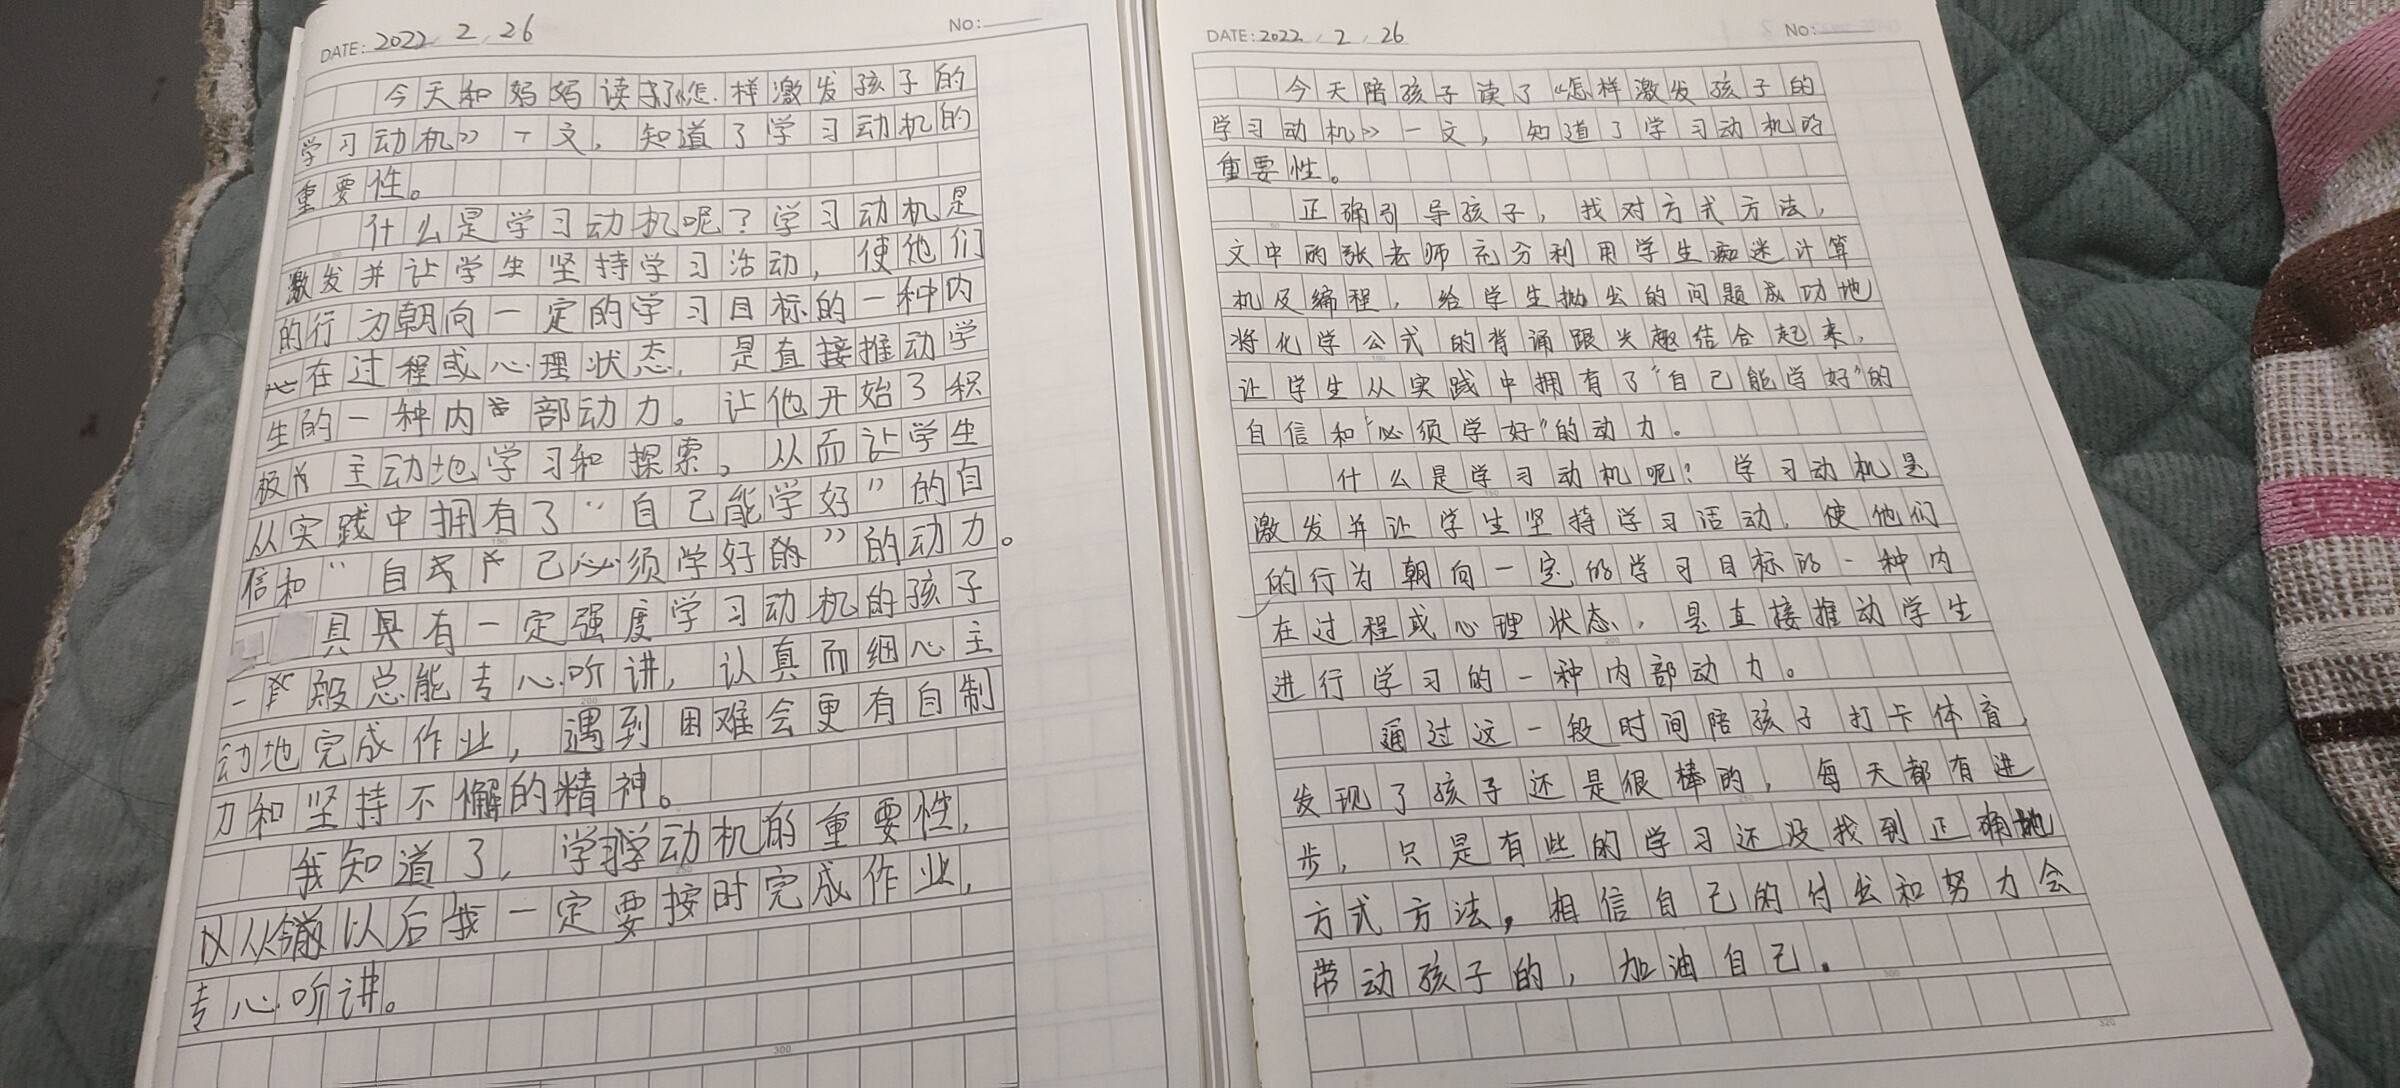 DATE: 2022 . 2 . 26
No:
今天和妈妈读了《怎样激发孩子的
学习动机》一文，知道了学习动机的
重要性。
什么是学习动机呢？学习动机是
激发并让学生坚持学习活动，使他们
的行为朝向一定的学习目标的一种内
在过程或心理状态，是直接推动学
生的一种内部动力。让他开始了积
极主动地学习和探索。从而让学生
从实践中拥有了“自己能学好”的自
信和“自己必须学好的”的动力。
具具有一定强度学习动机的孩子
一般总能专心听讲，认真而细心主
动地完成作业，遇到困难会更有自制
力和坚持不懈的精神。
我知道了，学习动机的重要性，
从以后我一定要按时完成作业，
专心听讲。
300
DATE: 2022 . 2 . 26
No:
今天陪孩子读了《怎样激发孩子的
学习动机》一文，知道了学习动机的
重要性。
正确引导孩子，找对方式方法，
文中的张老师充分利用学生痴迷计算
机及编程，给学生抛出的问题成功地
将化学公式的背诵跟兴趣结合起来，
让学生从实践中拥有了“自己能学好”的
自信和“必须学好”的动力。
什么是学习动机呢？学习动机是
激发并让学生坚持学习活动，使他们
的行为朝向一定的学习目标的一种内
在过程或心理状态，是直接推动学生
进行学习的一种内部动力。
通过这一段时间陪孩子打卡体育，
发现了孩子还是很棒的，每天都有进
步，只是有些的学习还没找到正确地
方式方法，相信自己的付出和努力会
带动孩子的，加油自己。
300
320